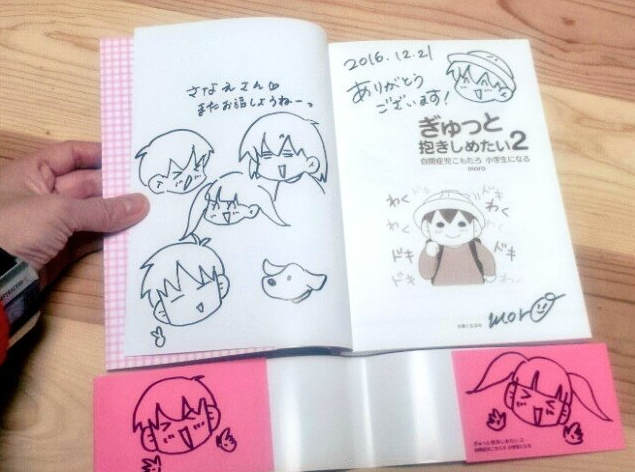 さなえさん
またお話しようねーっ
2016.12.21
ありがとう
ございます!
ぎゅっと
抱きしめたい2
自閉症児こもたろ 小学生になる
moro
わく ドキ ドキ わく
わく わく
ドキ ドキ
ドキ わく
moro
ぎゅっと抱きしめたい2
自閉症児こもたろ 小学生になる